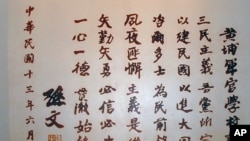 黃埔軍官學校
三民主義吾黨宗
以建民國以進大同
咨爾多士為民前鋒
夙夜匪懈主義是
矢勤矢勇必信必忠
一心一德貫徹始終
孫文
中華民國十三年六月
AP